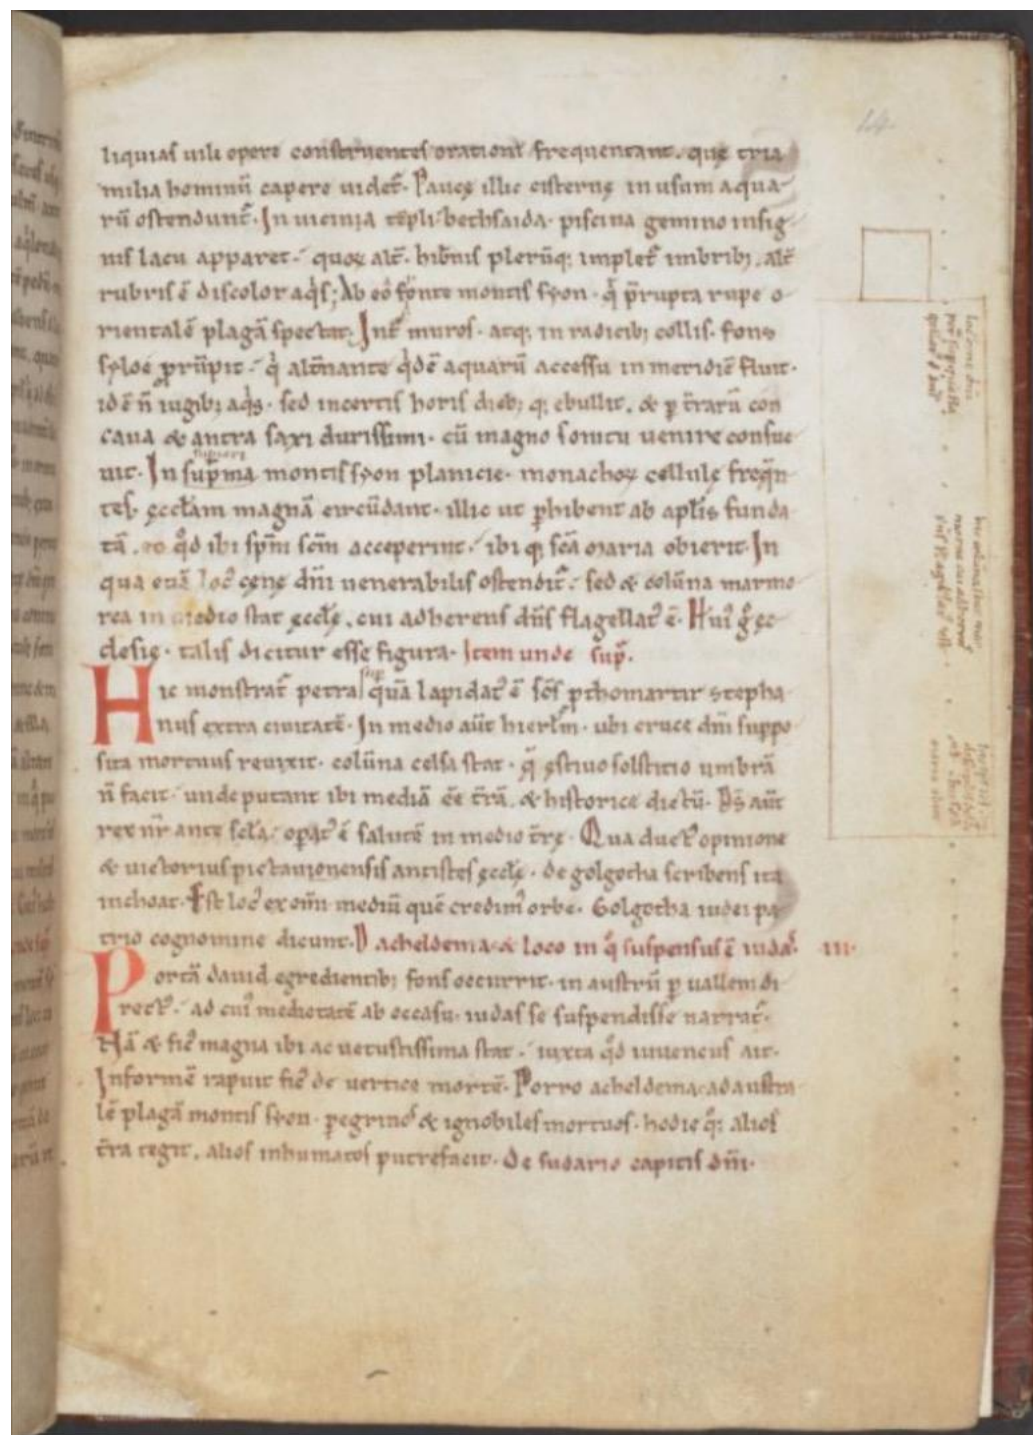 14.
liquias uili opere construentes orationi frequentant. quę tria
milia hominū capere uidet̄. Paucę illic cisternę in usum aqua-
rū ostendunt̄. In uicinia tēpli bethsaida. piscina gemino insig-
nis lacu apparet. quoꝝ alt̄. hib̄nis plerūq; implet̄ imbribꝫ. alt̄
rubris ē discolor aqͥs; Ab eo fronte montis syon. qͥ p̄rupta rupe o-
rientalē plagā spectat. Int̄ muros. atq; in radicibꝫ collis. fons
syloe ꝓrūpit. qͥ alt̄nante qͥdē aquarū accessu in meridiē fluit.
idē n̄ iugibꝫ aqͥs. sed incertis horis diebꝫ q; ebullit. & ꝑ t̄rarū con
caua & antra saxi durissimi. cū magno sonitu uenire consue
uit. In sup̄ma montis syon planicie. monachoꝝ cellulę freqn̄
superi
tes. ęccl̄am magnā circūdant. illic ut ꝑhibent ab apl̄is funda
tā. eo qͦd ibi sp̄m sc̄m acceperint. ibi q; sc̄a maria obierit. In
qua etiā locꝰ cęnę dn̄i uenerabilis ostendit̄. sed & colūna marmo
rea in medio stat ęccl̄ę. cui adherens dn̄s flagellatꝰ ē. Huiꝰ gͦ ęc
clesię. talis dicitur esse figura. Item unde sup̄.
Hic monstrat̄ petra sup quā lapidatꝰ ē sc̄s ꝓthomartir stepha
nus extra ciuitatē. In medio aūt hierl̄m. ubi cruce dn̄i suppo
sita mortuus reuixit. colūna celsa stat. qͥ ęstiuo solstitio umbrā
n̄ facit. unde putant ibi mediā eē t̄rā. & historice dictū. D̄s aūt
rex nr̄ ante sc̄la. oꝑatꝰ ē salutē in medio t̄rę. Qua ductꝰ opinione
& uictorius pictauionensis antistes ęccl̄ę. de golgotha scribens ita
inchoat. Est locꝰ ex om̄i mediū quē credimꝰ orbe. Golgotha iudei pa
trio cognomine dicunt. D acheldema. & loco in qͦ suspensus ē iudas. III.
Portā dauid egredientibꝫ fons occurrit. in austrū ꝑ uallem di
rectꝰ. ad cuiꝰ medietatē ab occasu. iudas se suspendisse narrat̄.
Nā & ficꝰ magna ibi ac uetustissima stat. iuxta qͦd iuuencus ait.
Informē rapuit ficꝰ de uertice mortē. Porro acheldemac ad austra
lē plagā montis syon. ꝑegrinos & ignobiles mortuos. hodie qͦq; alios
t̄ra tegit. alios inhumatos putrefacit. De sudario capitis dn̄i.